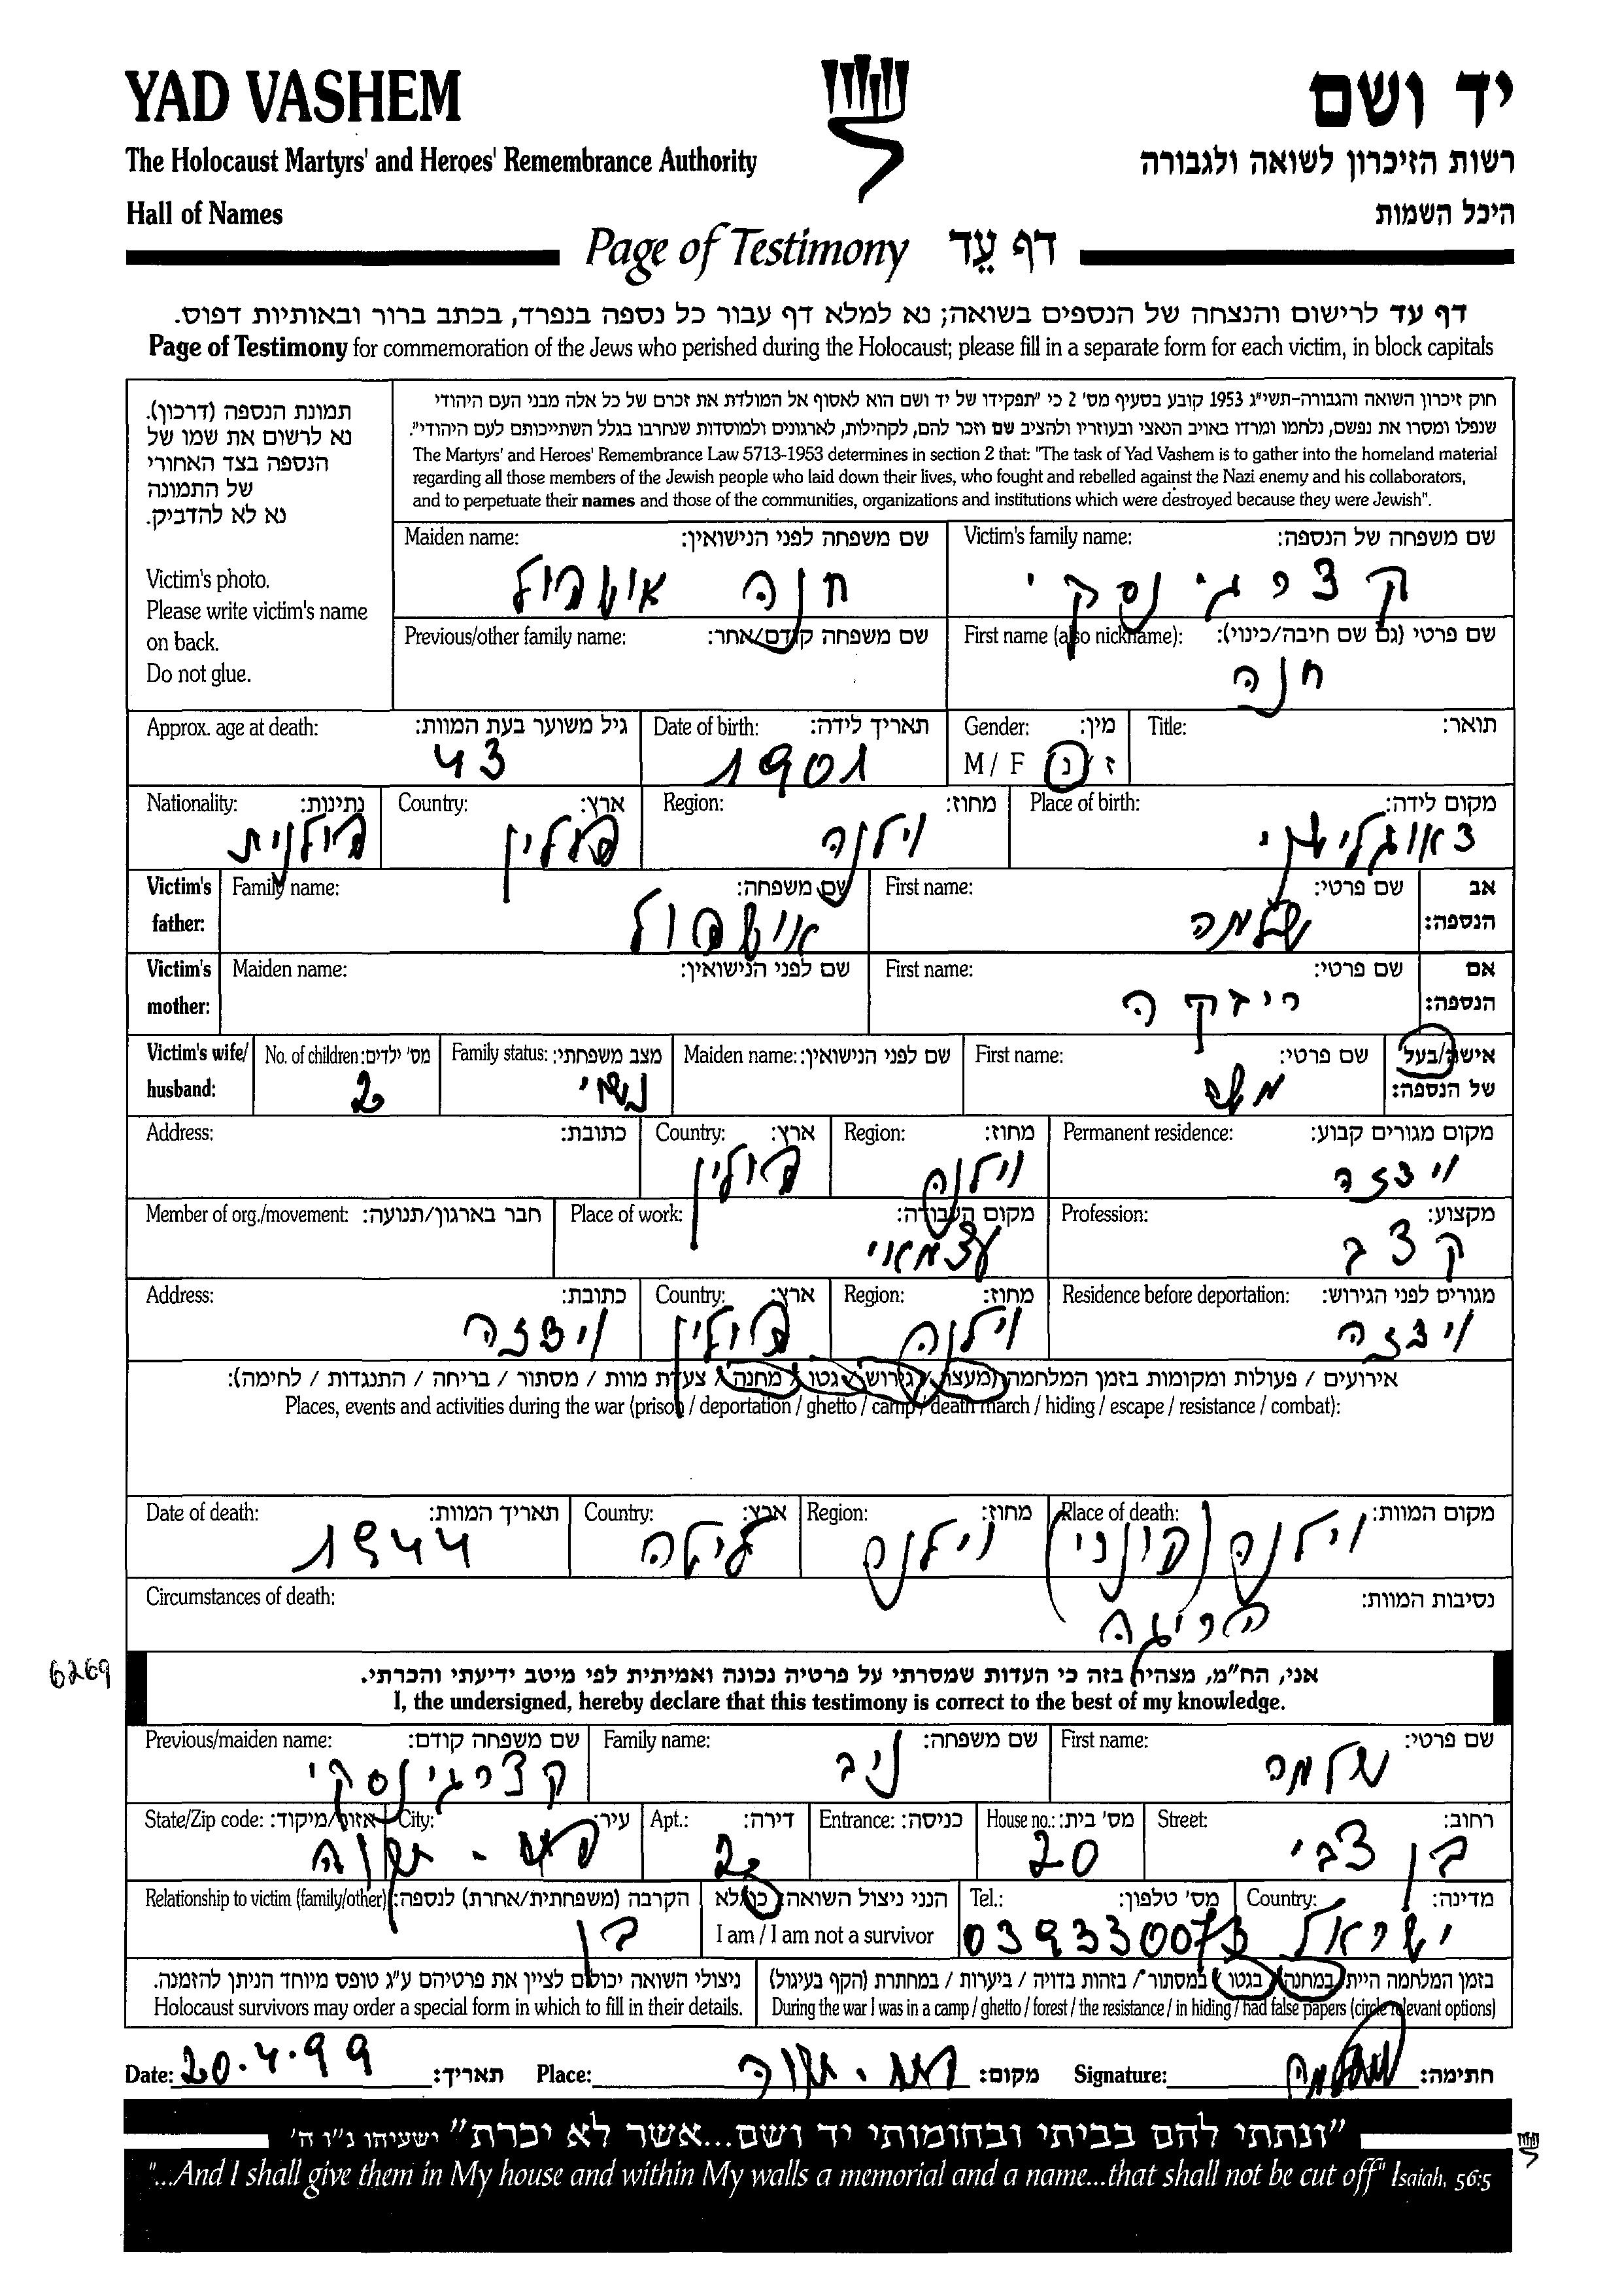 YAD VASHEM
יד ושם
The Holocaust Martyrs' and Heroes' Remembrance Authority
רשות הזיכרון לשואה ולגבורה
Hall of Names
היכל השמות
Page of Testimony דף עֵד
דף עד לרישום והנצחה של הנספים בשואה; נא למלא דף עבור כל נספה בנפרד, בכתב ברור ובאותיות דפוס.
Page of Testimony for commemoration of the Jews who perished during the Holocaust; please fill in a separate form for each victim, in block capitals
תמונת הנספה (דרכון).
נא לרשום את שמו של
הנספה בצד האחורי
של התמונה
נא לא להדביק.
Victim's photo.
Please write victim's name
on back.
Do not glue.
חוק זיכרון השואה והגבורה-תשי"ג 1953 קובע בסעיף מס' 2 כי "תפקידו של יד ושם הוא לאסוף אל המולדת את זכרם של כל אלה מבני העם היהודי
שנפלו ומסרו את נפשם, נלחמו ומרדו באויב הנאצי ובעוזריו ולהציב שם וזכר להם, לקהילות, לארגונים ולמוסדות שנחרבו בגלל השתייכותם לעם היהודי".
The Martyrs' and Heroes' Remembrance Law 5713-1953 determines in section 2 that: "The task of Yad Vashem is to gather into the homeland material
regarding all those members of the Jewish people who laid down their lives, who fought and rebelled against the Nazi enemy and his collaborators,
and to perpetuate their names and those of the communities, organizations and institutions which were destroyed because they were Jewish".
Victim's family name: שם משפחה של הנספה:
קצרגינסקי
Maiden name: שם משפחה לפני הנישואין:
חנה
First name (also nickname): שם פרטי (גם שם חיבה/כינוי):
חנה
Previous/other family name: שם משפחה קודם/אחר:
Title: תואר:
Gender: מין:
M / F ז / נ
Date of birth: תאריך לידה:
1901
Approx. age at death: גיל משוער בעת המוות:
43
Place of birth: מקום לידה:
Region: מחוז:
וילנה
Country: ארץ:
פולין
Nationality: נתינות:
פולנית
Victim's father: אב הנספה:
First name: שם פרטי:
שלמה
Family name: שם משפחה:
Victim's mother: אם הנספה:
First name: שם פרטי:
ריזקה
Maiden name: שם לפני הנישואין:
Victim's wife/ husband: אישה/בעל של הנספה:
First name: שם פרטי:
משה
Maiden name: שם לפני הנישואין:
Family status: מצב משפחתי:
נשוי
No. of children: מס' ילדים:
2
Permanent residence: מקום מגורים קבוע:
Region: מחוז:
וילנה
Country: ארץ:
פולין
Address: כתובת:
Profession: מקצוע:
קצב
Place of work: מקום העבודה:
עצמאי
Member of org./movement: חבר בארגון/תנועה:
Residence before deportation: מגורים לפני הגירוש:
Region: מחוז:
וילנה
Country: ארץ:
פולין
Address: כתובת:
אירועים / פעולות ומקומות בזמן המלחמה (מעצר / גירוש / גטו / מחנה / צעדת מוות / מסתור / בריחה / התנגדות / לחימה):
Places, events and activities during the war (prison / deportation / ghetto / camp / death march / hiding / escape / resistance / combat):
Place of death: מקום המוות:
וילנה (פונרי)
Region: מחוז:
וילנה
Country: ארץ:
ליטה
Date of death: תאריך המוות:
1944
Circumstances of death: נסיבות המוות:
הריגה
6269
אני, הח"מ, מצהיר בזה כי העדות שמסרתי על פרטיה נכונה ואמיתית לפי מיטב ידיעתי והכרתי.
I, the undersigned, hereby declare that this testimony is correct to the best of my knowledge.
First name: שם פרטי:
שלמה
Family name: שם משפחה:
ניב
Previous/maiden name: שם משפחה קודם:
קצרגינסקי
Street: רחוב:
בן צבי
House no.: מס' בית:
20
Entrance: כניסה:
Apt.: דירה:
2
City: עיר:
פתח-תקוה
State/Zip code: אזור/מיקוד:
Country: מדינה:
ישראל
Tel.: מס' טלפון:
039330073
הנני ניצול השואה: כן/לא
I am / I am not a survivor
Relationship to victim (family/other): הקרבה (משפחתית/אחרת) לנספה:
בן
בזמן המלחמה הייתי במחנה / בגטו / במסתור / בזהות בדויה / ביערות / במחתרת (הקף בעיגול)
During the war I was in a camp / ghetto / forest / the resistance / in hiding / had false papers (circle relevant options)
ניצולי השואה יכולים לציין את פרטיהם ע"ג טופס מיוחד הניתן להזמנה.
Holocaust survivors may order a special form in which to fill in their details.
Date: 20.4.99 תאריך: Place: פתח-תקוה מקום: Signature: חתימה:
"ונתתי להם בביתי ובחומותי יד ושם...אשר לא יכרת" ישעיהו נ"ו ה'
"...And I shall give them in My house and within My walls a memorial and a name...that shall not be cut off" Isaiah, 56:5